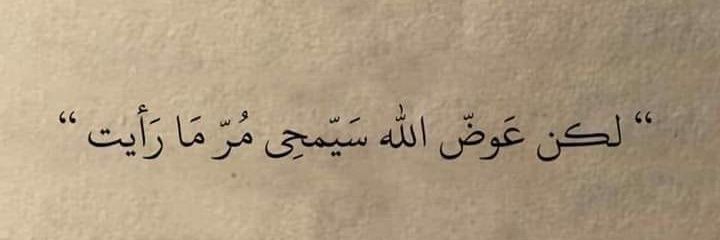 “ لكن عَوضّ الله سَيّمحِى مُرّ مَا رَأيت “